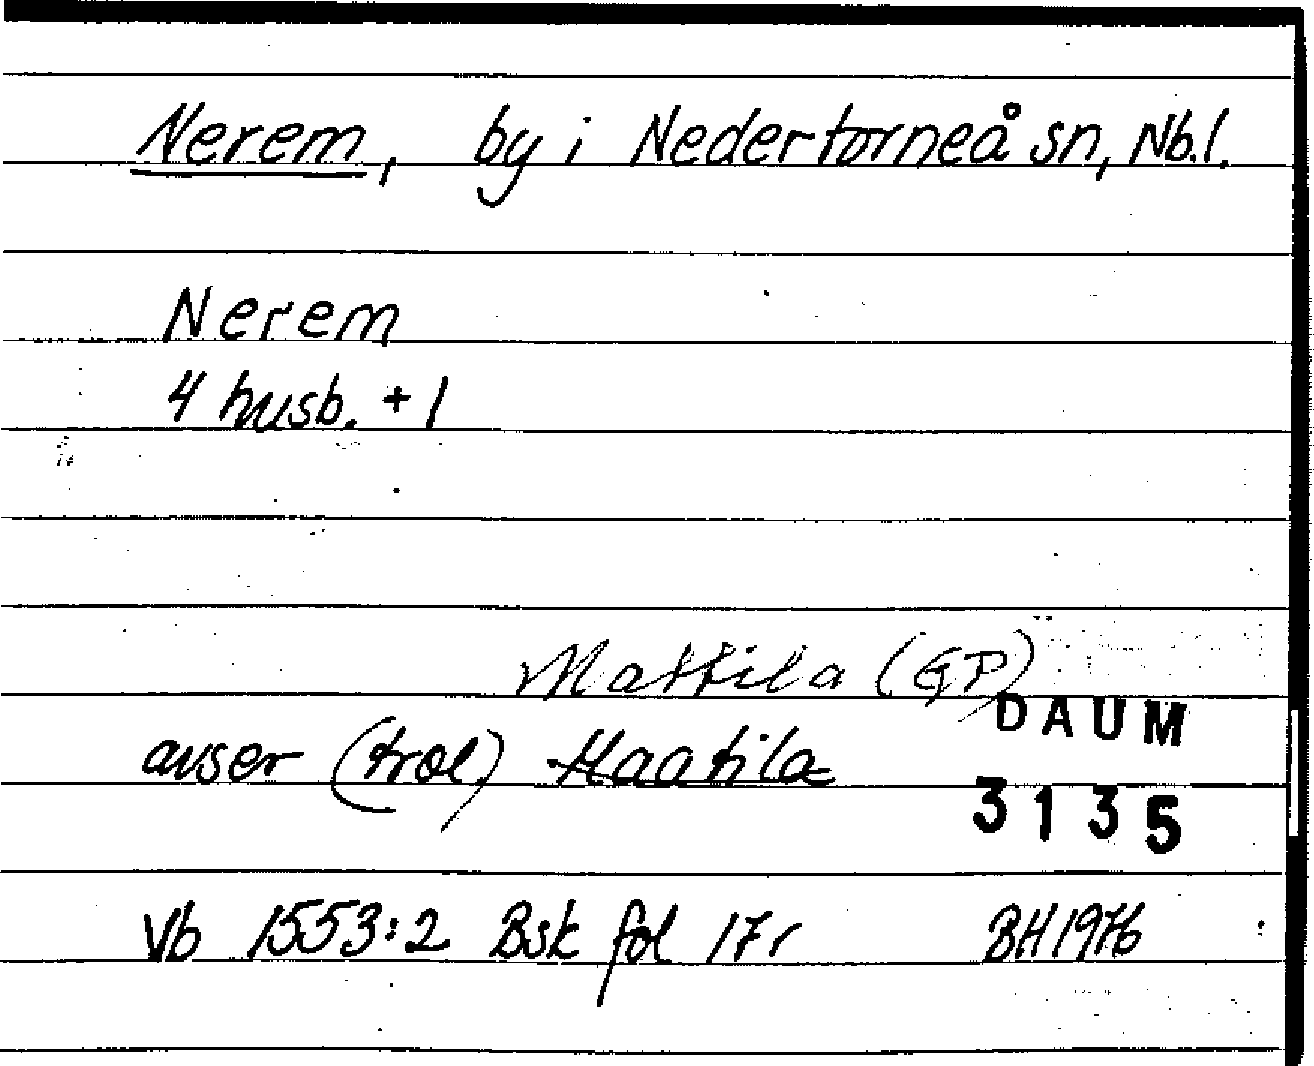 Nerem, by i Nedertorneå sn, Nb.l.
Nerem
4 husb. + 1
Mattila (GP)
avser (trol) Haatila
DAUM
3135
Vb 1553:2 Bsk fol 17r BH 1976